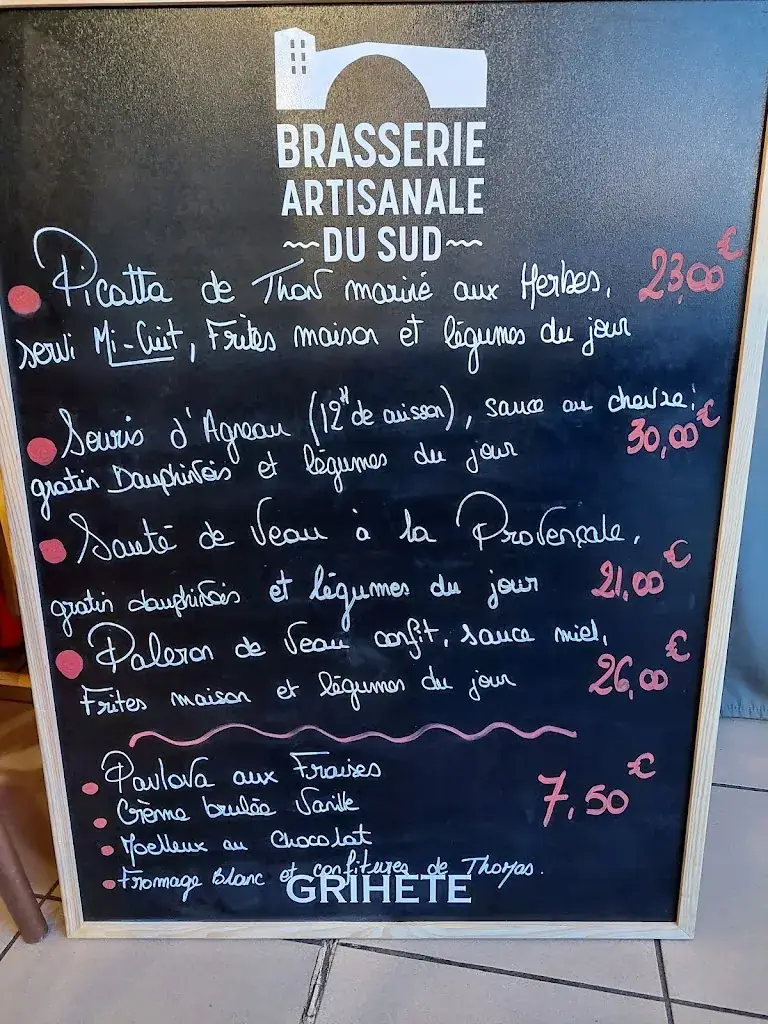 BRASSERIE
ARTISANALE
~DU SUD~
Picatta de Thon mariné aux Herbes, 23,00€
servi Mi-Cuit, Frites maison et légumes du jour
Souris d'Agneau (12H de cuisson), sauce au chevre! 30,00€
gratin Dauphinois et légumes du jour
Sauté de Veau à la Provençale,
gratin dauphinois et légumes du jour 21,00€
Paleron de Veau confit, sauce miel,
Frites maison et légumes du jour 26,00€
Pavlova aux Fraises
Crème brulée Vanille 7,50€
Moelleux au Chocolat
Fromage Blanc et confitures de Thomas.
GRIHETE